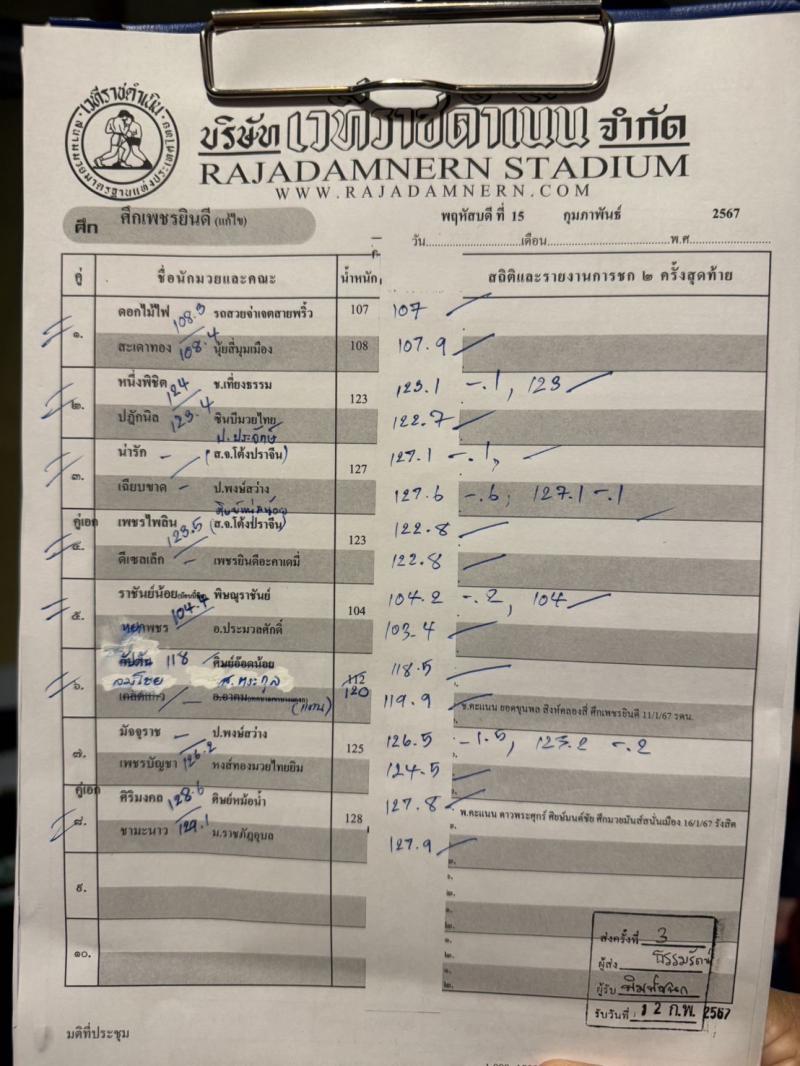 เวทีราชดำเนิน
บริษัท เวทีราชดำเนิน จำกัด
RAJADAMNERN STADIUM
WWW.RAJADAMNERN.COM
ศึก ศึกเพชรยินดี (แก้ไข) พฤหัสบดี ที่ 15 กุมภาพันธ์ 2567
วัน เดือน พ.ศ
คู่ ชื่อนักมวยและคณะ น้ำหนัก สถิติและรายงานการชก ๒ ครั้งสุดท้าย
๑. ดอกไม้ไฟ 108.3 รถสวยจ่าเจตสายพริ้ว 107 107
สะเดาทอง 108.4 นุ้ยสี่มุมเมือง 108 107.9
๒. หนึ่งพิชิต 124 ช.เที่ยงธรรม 123 123.1 -.1, 123
ปฏักนิล 123.4 ชินบีมวยไทย 122.7
ป.ประจักษ์
๓. น่ารัก - (ส.จ.โต้งปราจีน) 127 127.1 -.1,
เฉียบขาด - ป.พงษ์สว่าง 127.6 -.6; 127.1 -.1
คู่เอก
๔. เพชรไพลิน 123.5 (ส.จ.โต้งปราจีน) 123 122.8
ดีเซลเล็ก - เพชรยินดีอะคาเดมี่ 122.8
๕. ราชันย์น้อย พิษณุราชันย์ 104 104.2 -.2, 104
หยกเพชร 104.7 อ.ประมวลศักดิ์ 103.4
๖. กัปตัน 118 ศิษย์อ๊อดน้อย 112 118.5
120
(แทน) 119.9 ช.คะแนน ยอดขุนพล สิงห์คลองสี่ ศึกเพชรยินดี 11/1/67 รดน.
๗. มัจจุราช - ป.พงษ์สว่าง 125 126.5 -1.5, 123.2 -.2
เพชรบัญชา 126.2 หงส์ทองมวยไทยยิม 124.5
คู่เอก
๘. ศิริมงคล 128.6 ศิษย์หม้อน้ำ 128 127.8 พ.คะแนน ดาวพระศุกร์ ศิษย์มนต์ชัย ศึกมวยมันส์สนั่นเมือง 16/1/67 รังสิต
ชามะนาว 129.1 ม.ราชภัฏอุบล 127.9
๙.
๑๐.
ส่งครั้งที่ 3
ผู้ส่ง
ผู้รับ
รับวันที่ 12 ก.พ. 2567
มติที่ประชุม